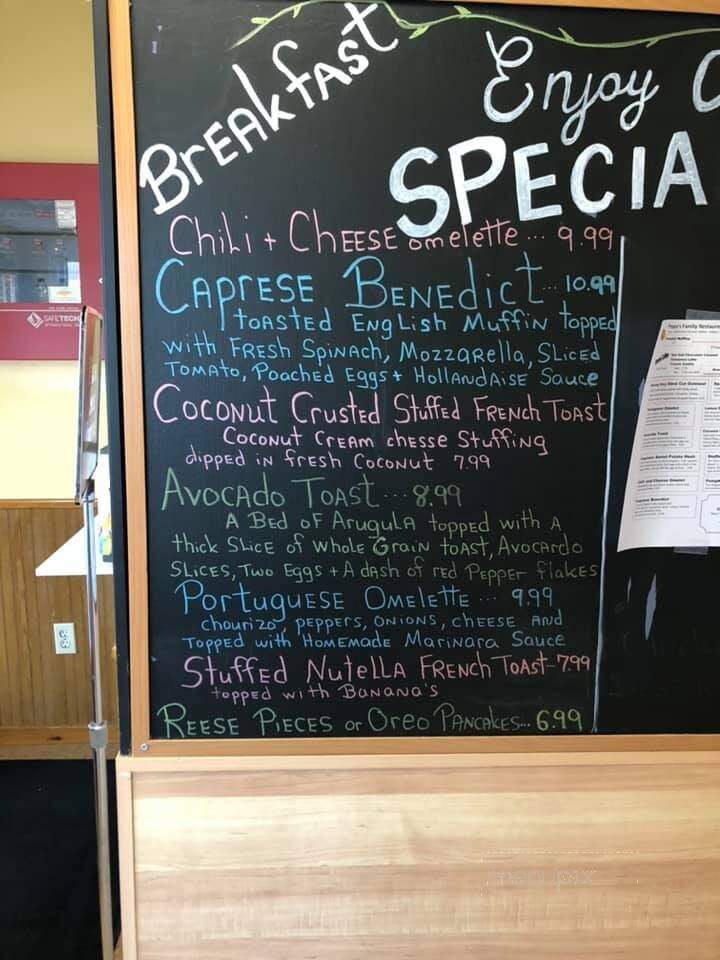 BREAKFAST
Enjoy
SPECIA
Chili + CHEESE omelette ... 9.99
CAPRESE BENEDICT... 10.99
TOASTED ENGLish Muffin topped
with FRESH Spinach, MozzaRella, SLiced
TOMATO, Poached Eggs + HollanDAISE Sauce
Coconut Crusted Stuffed FRENCH TOAST
Coconut CREAM chesse Stuffing
dipped in fresh Coconut 7.99
Avocado Toast ... 8.99
A Bed of ArugulA topped with A
thick Slice of Whole Grain toast, Avocardo
SLices, Two Eggs + A dash of red Pepper flakes
Portuguese Omelette ... 9.99
chourizo peppers, onions, cheese and
Topped with Homemade Marinara Sauce
Stuffed Nutella FRENCH TOAST-7.99
topped with Banana's
REESE PIECES or Oreo Pancakes... 6.99
SAFETECH